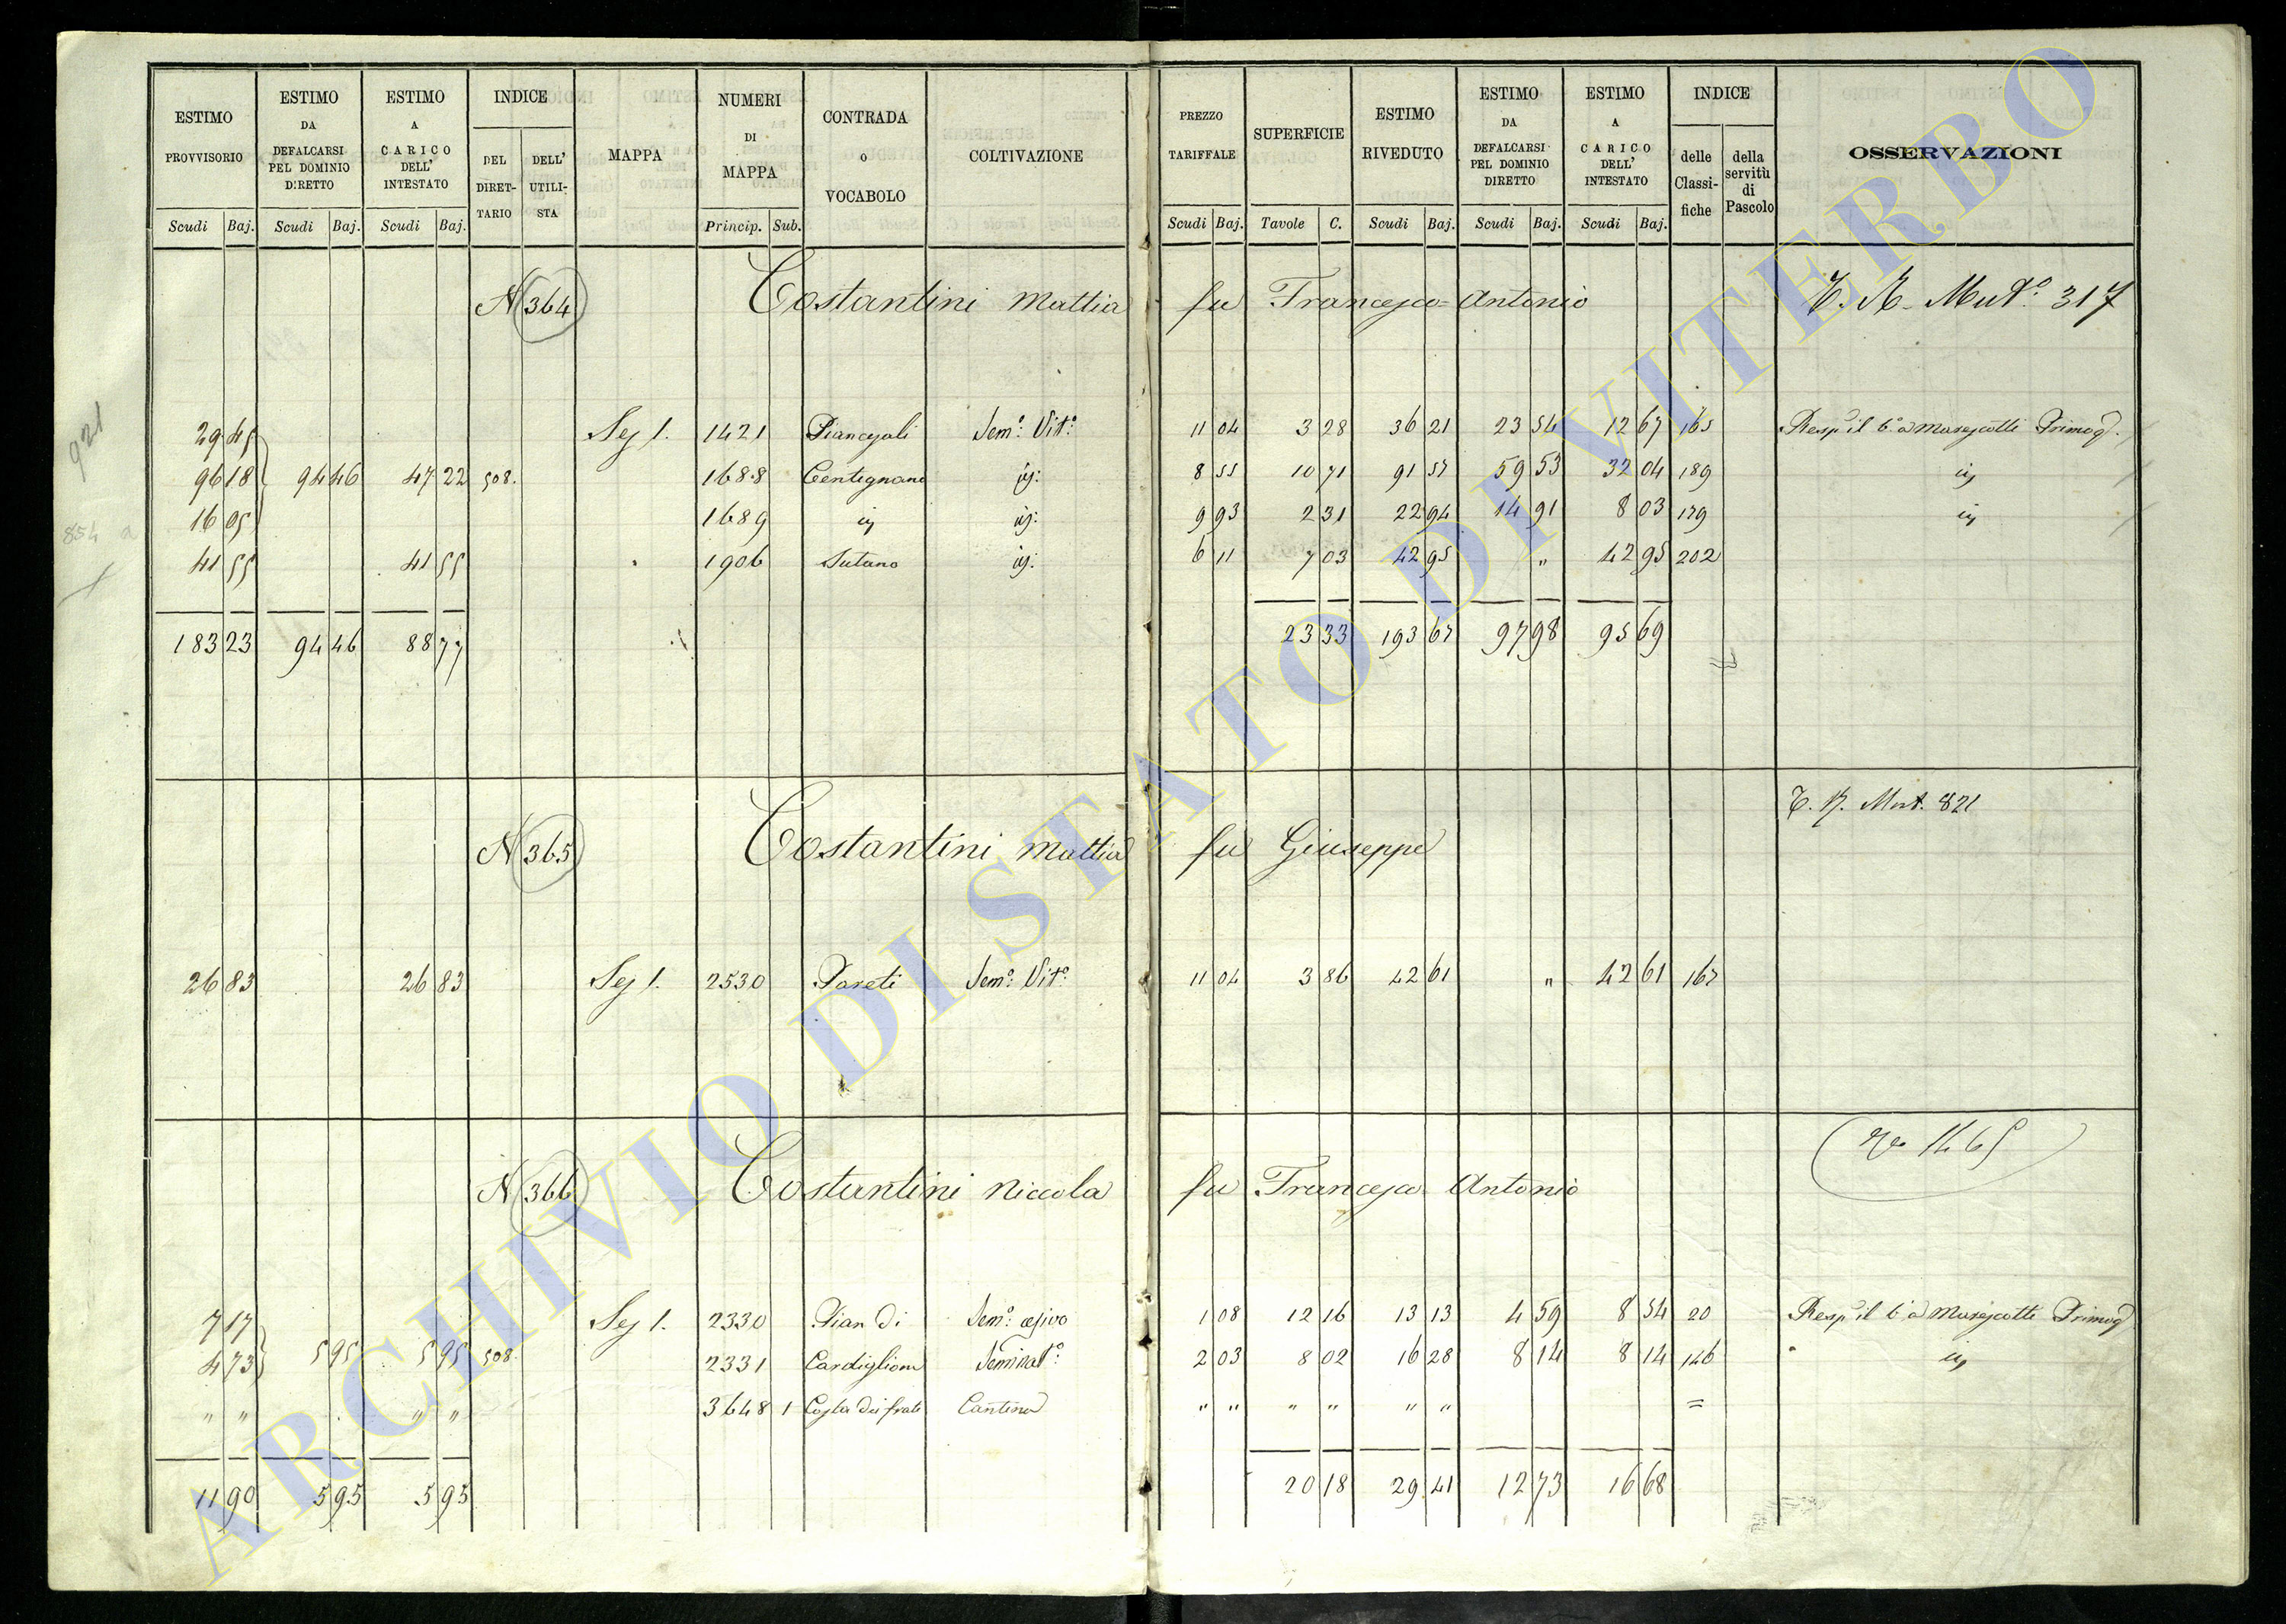 ESTIMO PROVVISORIO Scudi Baj.
ESTIMO DA DEFALCARSI PEL DOMINIO DIRETTO Scudi Baj.
ESTIMO A CARICO DELL' INTESTATO Scudi Baj.
INDICE DEL DIRET-TARIO DELL' UTILI-STA
MAPPA
NUMERI DI MAPPA Princip. Sub.
CONTRADA O VOCABOLO
COLTIVAZIONE
PREZZO TARIFFALE Scudi Baj.
SUPERFICIE Tavole C.
ESTIMO RIVEDUTO Scudi Baj.
ESTIMO DA DEFALCARSI PEL DOMINIO DIRETTO Scudi Baj.
ESTIMO A CARICO DELL' INTESTATO Scudi Baj.
INDICE delle Classi-fiche della servitù di Pascolo
OSSERVAZIONI
N 364 Costantini Mattia fu Francesco Antonio Mut.º 317
921
29 45 Sez 1. 1421 Sem.º Vit.º 11 04 3 28 36 21 23 54 12 67 165 Resp. il 6.º a Marescotti Primog.
96 18 94 46 47 22 508. 1688 Centignano id: 8 55 10 71 91 57 59 53 32 04 189 id
854 a 16 05 1689 id id: 9 93 2 31 22 94 14 91 8 03 179 id
41 55 41 55 1906 Sutano id: 6 11 7 03 42 95 " 42 95 202
183 23 94 46 88 77 23 33 193 67 97 98 95 69
Mut. 821
N 365 Costantini Mattia fu Giuseppe
26 83 26 83 Sez 1. 2530 Pareti Sem.º Vit.º 11 04 3 86 42 61 " 42 61 167
1465
N 366 Costantini Niccola fu Francesco Antonio
7 17 Sez 1. 2330 Pian di Sem.º 1 08 12 16 13 13 4 59 8 54 20 Resp. il 6.º a Marescotti Primog
4 73 5 95 5 95 508. 2331 Cardiglione Seminat.º 2 03 8 02 16 28 8 14 8 14 146 id
" " " " 3648 1 frati Cantina " " " " " " =
11 90 5 95 5 95 20 18 29 41 12 73 16 68
ARCHIVIO DI STATO DI VITERBO